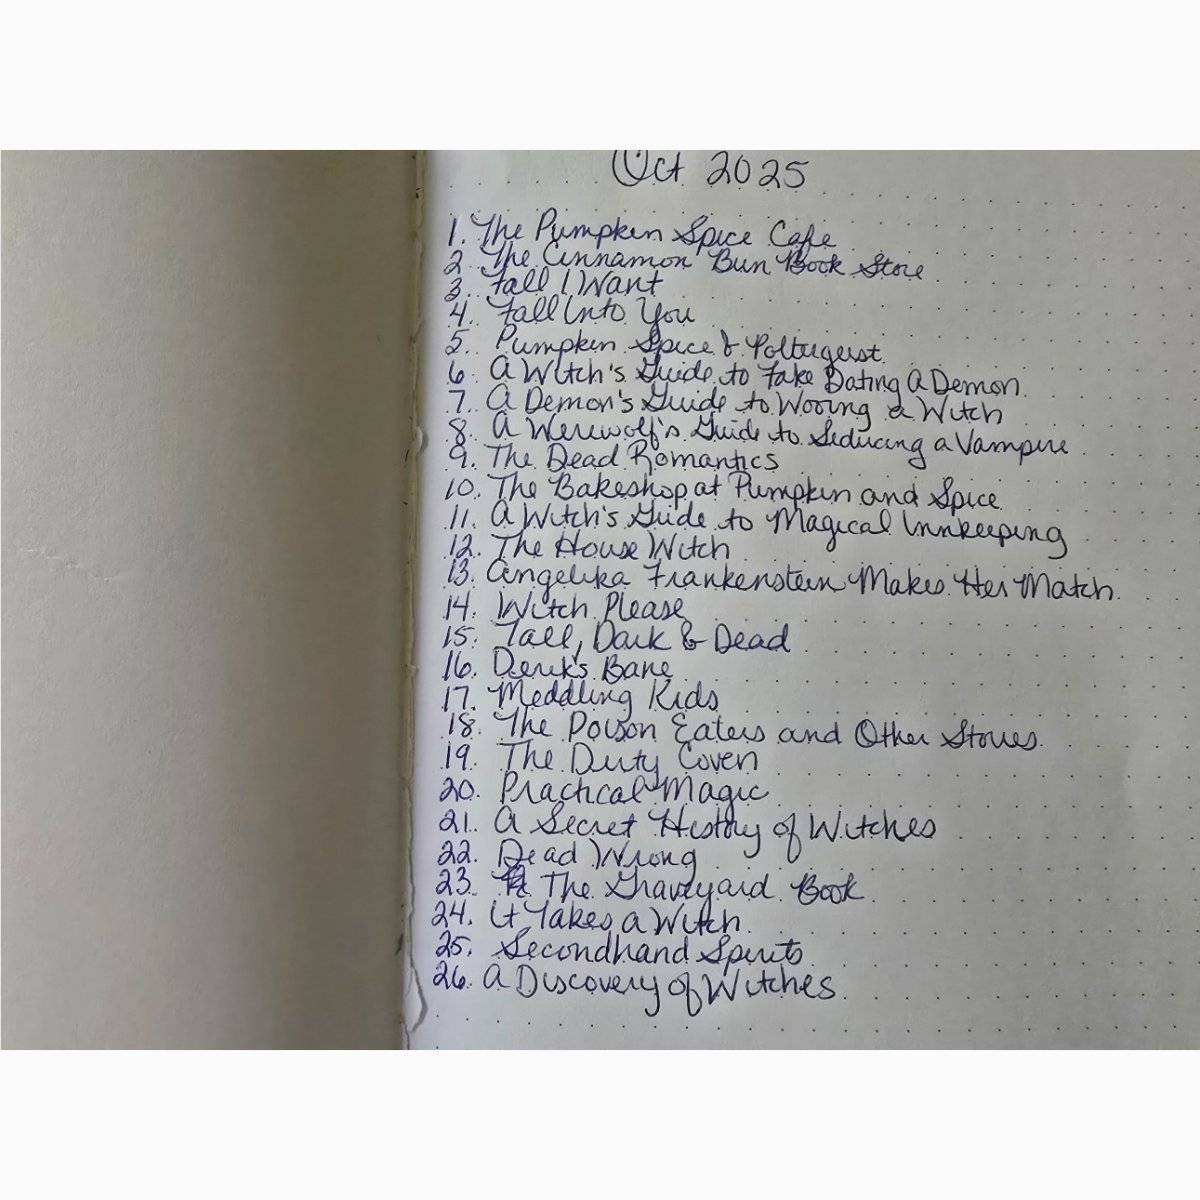 Oct 2025
1. The Pumpkin Spice Cafe
2 The Cinnamon Bun Book Store
3. Fall I Want
4. Fall Into You
5. Pumpkin Spice & Poltergeist
6. A Witch's Guide to Fake Dating A Demon
7. A Demon's Guide to Wooing a Witch
8. A Werewolf's Guide to Seducing a Vampire
9. The Dead Romantics
10. The Bakeshop at Pumpkin and Spice
11. A Witch's Guide to Magical Innkeeping
12. The House Witch
13. Angelika Frankenstein Makes Her Match
14. Witch Please
15. Tall, Dark & Dead
16. Derik's Bane
17. Meddling Kids
18. The Poison Eaters and Other Stories
19. The Dirty Coven
20. Practical Magic
21. A Secret History of Witches
22. Dead Wrong
23. The Graveyard Book
24. It Takes a Witch
25. Secondhand Spirits
26. A Discovery of Witches